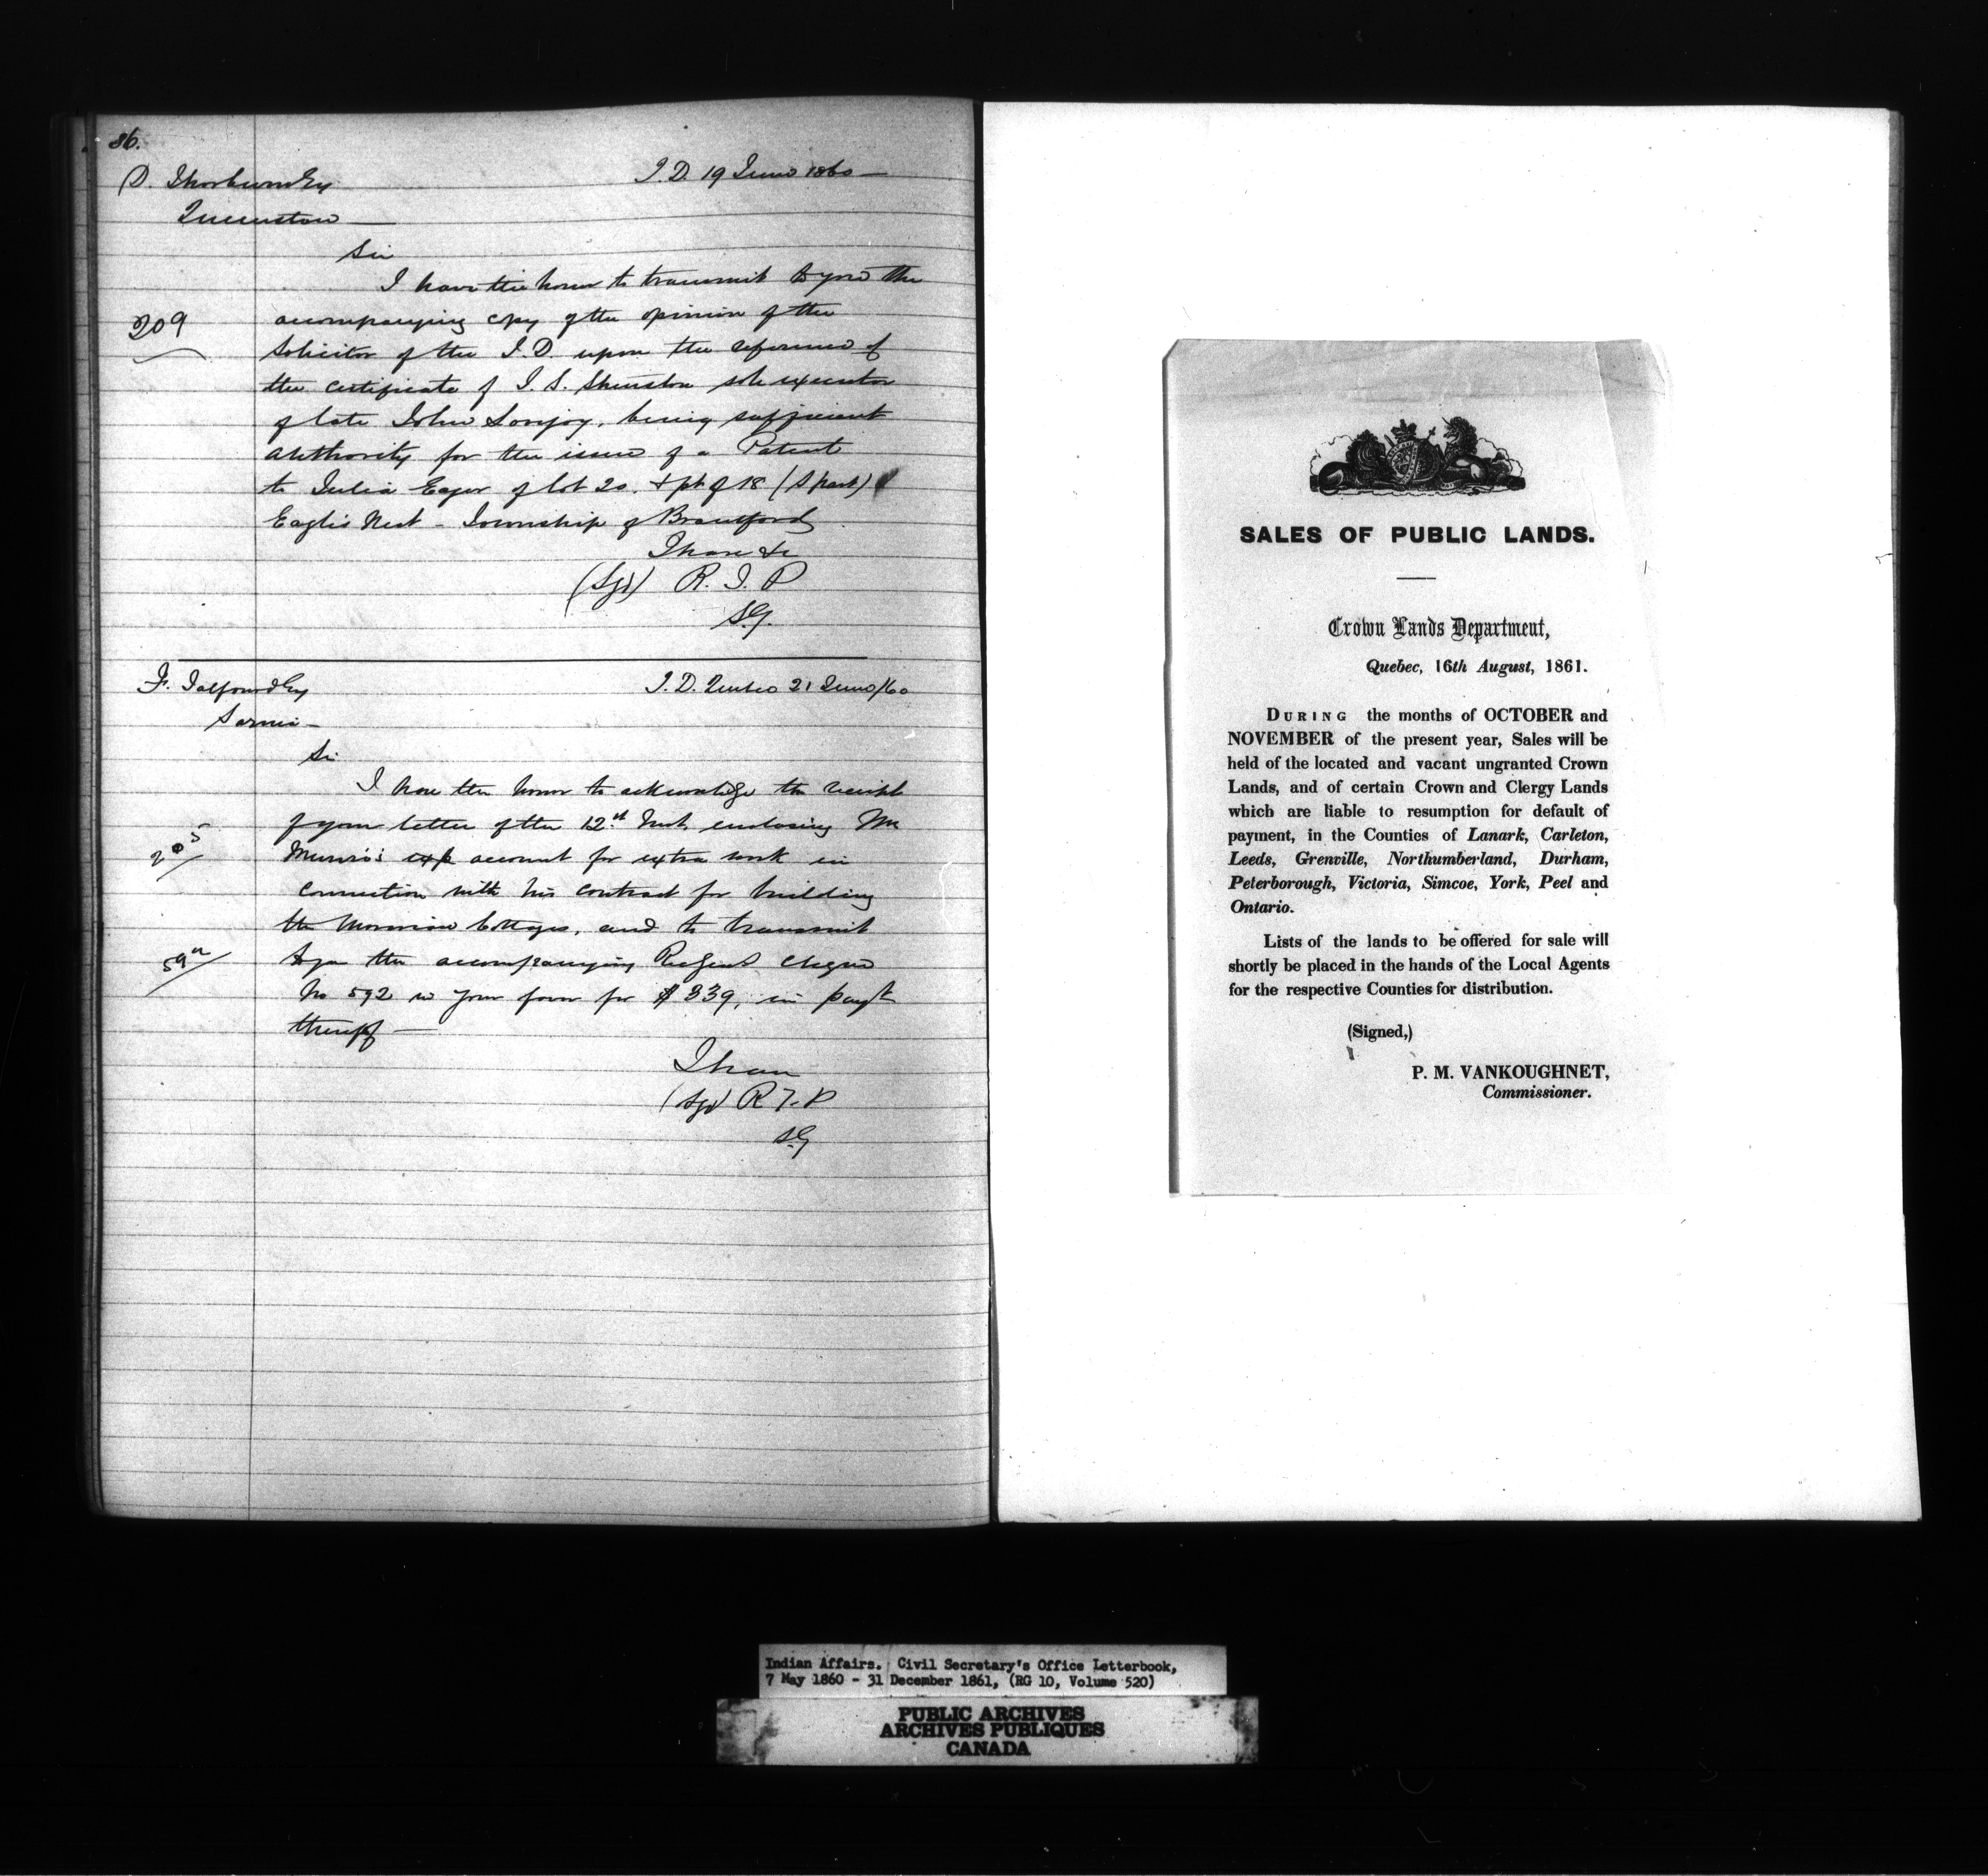 86.
D. Thorburn Esq
I.D. 19 June 1860
Queenston
Sir
I have the honor to transmit to you the
209
accompanying copy of the opinion of the
Solicitor of the I.D. upon the reference of
the certificate of T. S. Shenston sole executor
of late John Lovejoy, being sufficient
authority for the issue of a Patent
to Julia Eager of lot 20. & pt of 18 (S part)
Eagle's Nest - Township of Brantford
I have &c
(Sgd) R. T. P
S.G.
F. Talfourd Esq
I.D. Quebec 21 June/60
Sarnia
Sir
I have the honor to acknowledge the receipt
of your letter of the 12th Inst, enclosing Mr
205
Munro's account for extra work in
connection with his contract for building
the Moravian Cottages, and to transmit
to you the accompanying cheque
No 592 in your favor for $339, in payt
thereof
I have
(Sgd) R T. P
S.G
SALES OF PUBLIC LANDS.
Crown Lands Department,
Quebec, 16th August, 1861.
DURING the months of OCTOBER and
NOVEMBER of the present year, Sales will be
held of the located and vacant ungranted Crown
Lands, and of certain Crown and Clergy Lands
which are liable to resumption for default of
payment, in the Counties of Lanark, Carleton,
Leeds, Grenville, Northumberland, Durham,
Peterborough, Victoria, Simcoe, York, Peel and
Ontario.
Lists of the lands to be offered for sale will
shortly be placed in the hands of the Local Agents
for the respective Counties for distribution.
(Signed,)
P. M. VANKOUGHNET,
Commissioner.
Indian Affairs. Civil Secretary's Office Letterbook,
7 May 1860 - 31 December 1861, (RG 10, Volume 520)
PUBLIC ARCHIVES
ARCHIVES PUBLIQUES
CANADA